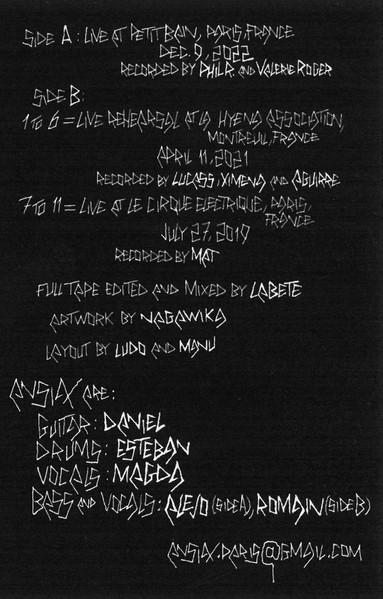 SIDE A : LIVE AT PETIT BAIN, PARIS, FRANCE
DEC. 9, 2022
RECORDED BY PHIL R. AND VALERIE ROGER
SIDE B:
1 TO 6 = LIVE REHEARSAL AT LA HYENA ASSOCIATION,
MONTREUIL, FRANCE
APRIL 11, 2021
RECORDED BY LUCASS, XIMENA AND AGUIRRE
7 TO 11 = LIVE AT LE CIRQUE ELECTRIQUE, PARIS,
FRANCE
JULY 27, 2019
RECORDED BY MAT
FULL TAPE EDITED AND MIXED BY LABETE
ARTWORK BY NAGAWIKA
LAYOUT BY LUDO AND MANU
ANSIAX ARE:
GUITAR : DANIEL
DRUMS : ESTEBAN
VOCALS : MAGDA
BASS AND VOCALS : ALEJO (SIDE A), ROMAIN (SIDE B)
ANSIAX.PARIS@GMAIL.COM